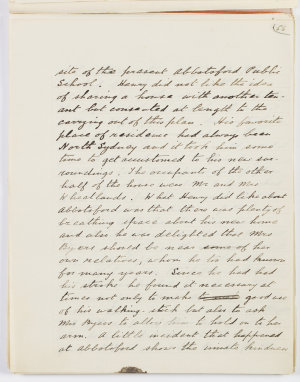 site of the present Abbotsford Public
School. Henry did not like the idea
of sharing a house with another ten-
ant but consented at length to the
carrying out of this plan. His favorite
place of residence had always been
North Sydney and it took him some
time to get accustomed to his new sur-
roundings. The occupants of the other
half of the house were Mr and Mrs
Wheatlands. What Henry did like about
Abbotsford was that there was plenty of
breathing space about his new home
and also he was delighted that Mrs
Byers should be near some of her
own relatives, whom he too had known
for many years. Since he had had
his stroke he found it necessary at
times not only to make good use
of his walking stick but also to ask
Mrs Byers to allow him to hold on to her
arm. A little incident that happened
at Abbotsford shows the innate kindness